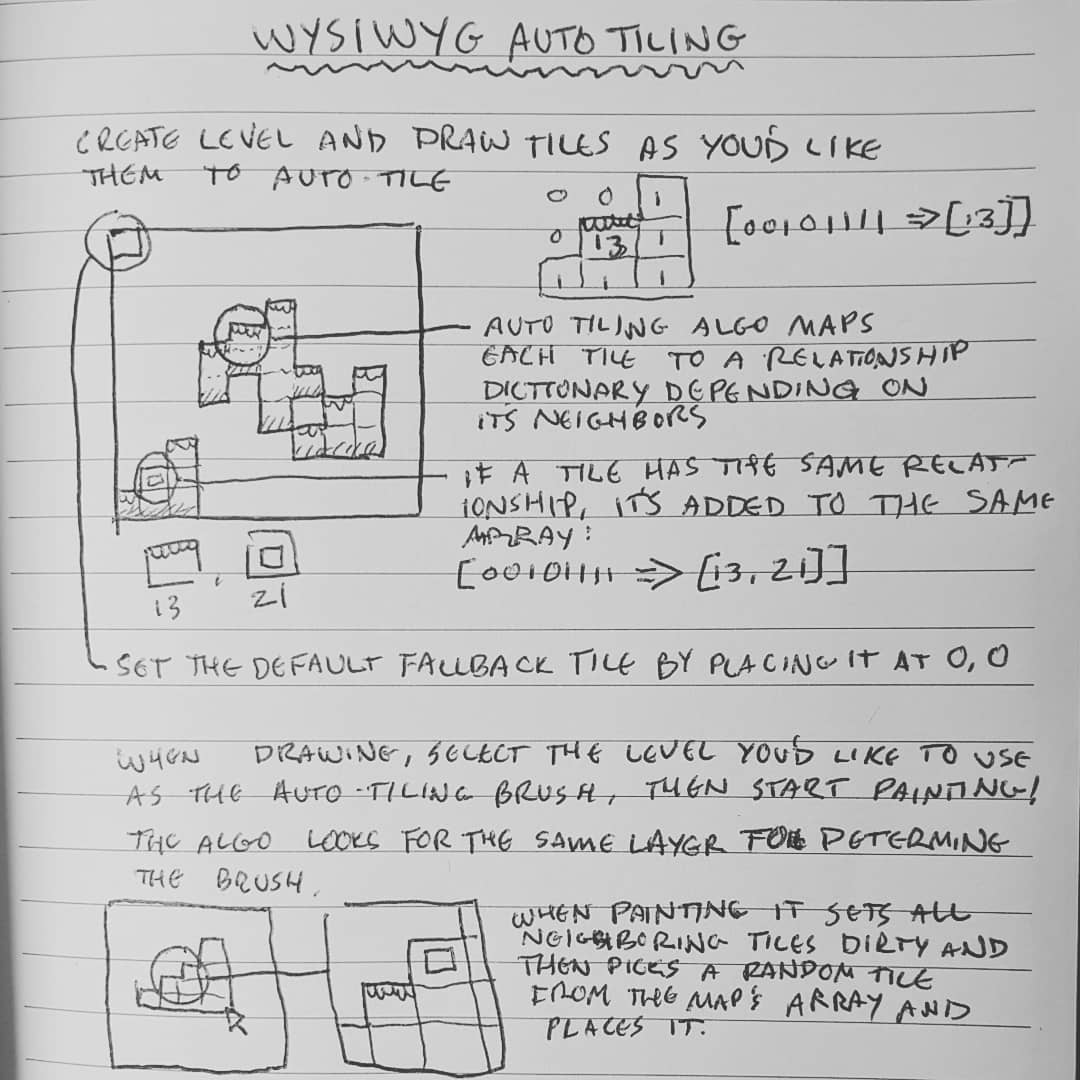 WYSIWYG AUTO TILING
CREATE LEVEL AND DRAW TILES AS YOU'D LIKE
THEM TO AUTO-TILE
0 0 1
0 13 1
1 1 1
[00101111 => [13]]
AUTO TILING ALGO MAPS
EACH TILE TO A RELATIONSHIP
DICTIONARY DEPENDING ON
IT'S NEIGHBORS
IF A TILE HAS THE SAME RELAT-
IONSHIP, IT'S ADDED TO THE SAME
ARRAY:
[00101111 => [13, 21]]
13 , 21
SET THE DEFAULT FALLBACK TILE BY PLACING IT AT 0,0
WHEN DRAWING, SELECT THE LEVEL YOU'D LIKE TO USE
AS THE AUTO-TILING BRUSH, THEN START PAINTING!
THE ALGO LOOKS FOR THE SAME LAYER FOR DETERMING
THE BRUSH.
WHEN PAINTING IT SETS ALL
NEIGHBORING TILES DIRTY AND
THEN PICKS A RANDOM TILE
FROM THE MAP'S ARRAY AND
PLACES IT.